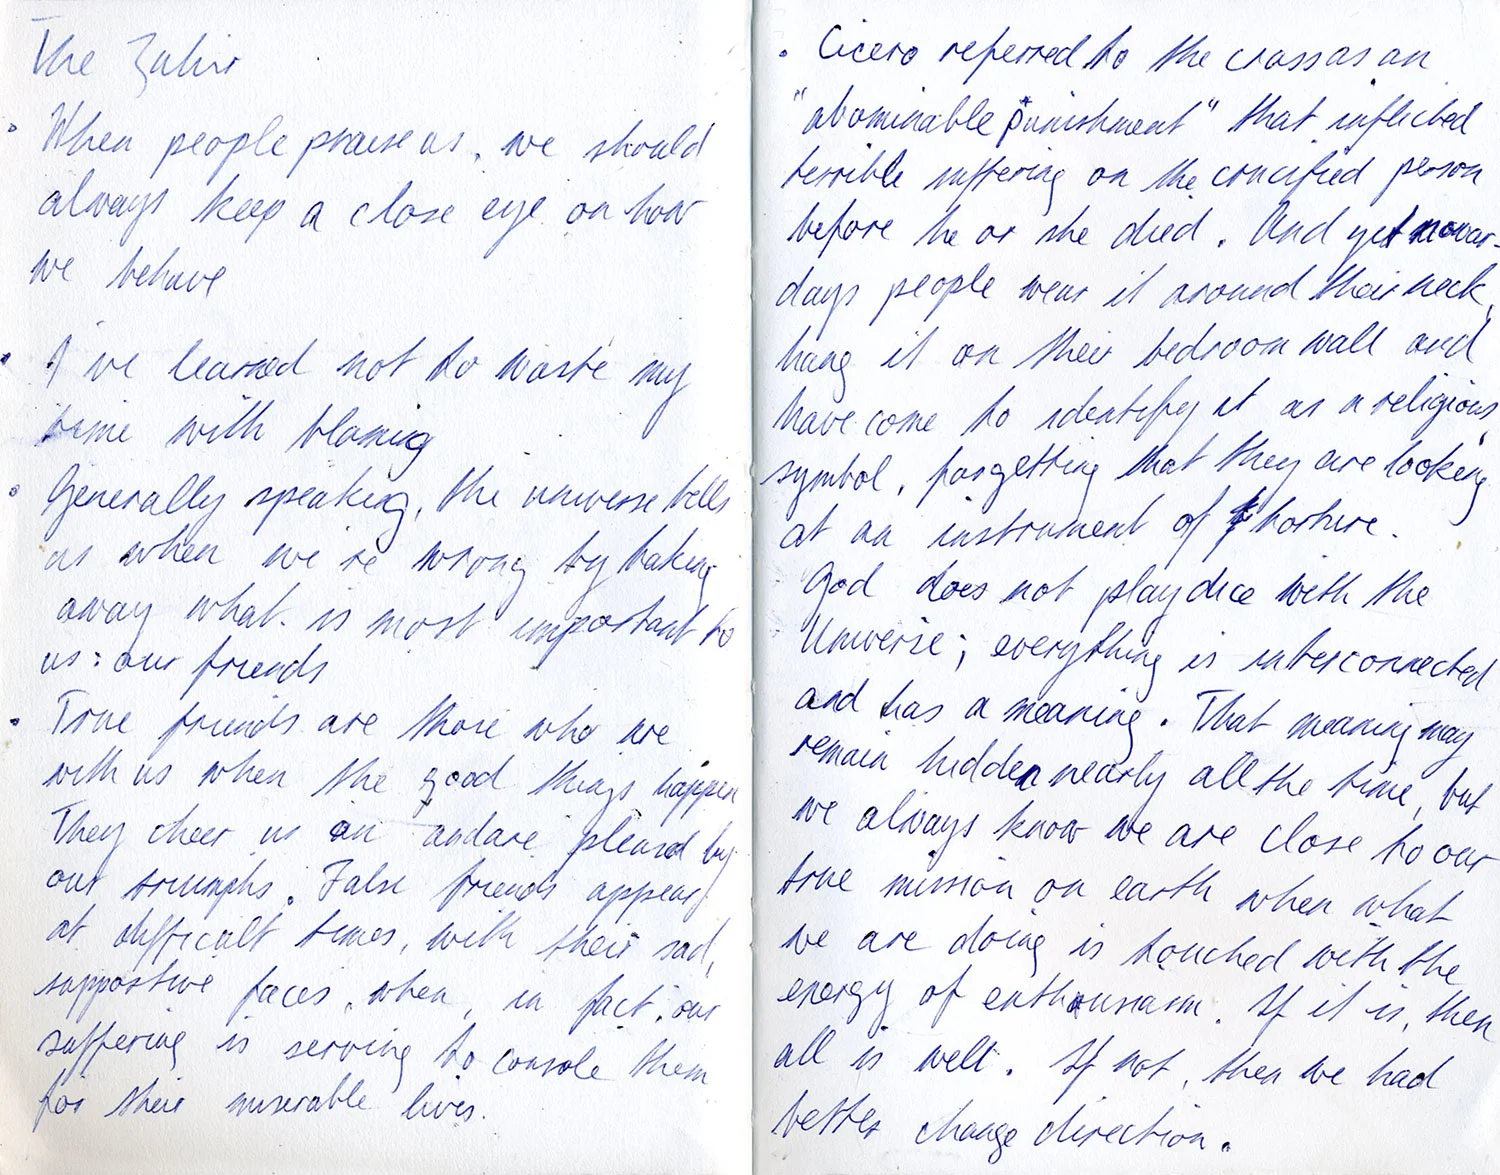 The Zahir
• When people praise us, we should
always keep a close eye on how
we behave
• I've learned not to waste my
time with blaming
• Generally speaking, the universe tells
us when we're wrong by taking
away what is most important to
us: our friends
• True friends are those who are
with us when the good things happen
They cheer us on and are pleased by
our triumphs. False friends appear
at difficult times, with their sad,
supportive faces, when, in fact, our
suffering is serving to console them
for their miserable lives.
• Cicero referred to the cross as an
"abominable punishment" that inflicted
terrible suffering on the crucified person
before he or she died. And yet nowa-
days people wear it around their neck,
hang it on their bedroom wall and
have come to identify it as a religious
symbol, forgetting that they are looking
at an instrument of torture.
God does not play dice with the
Universe; everything is interconnected
and has a meaning. That meaning may
remain hidden nearly all the time, but
we always know we are close to our
true mission on earth when what
we are doing is touched with the
energy of enthousiasm. If it is, then
all is well. If not, then we had
better change direction.